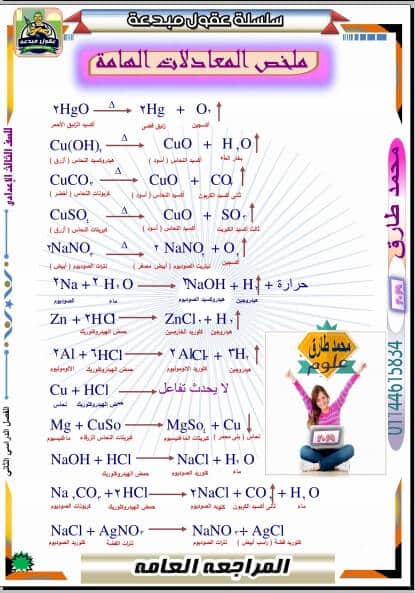 سلسلة عقول مبدعة
عقول مبدعة
ملخص المعادلات الهامة
٢HgO Δ ٢Hg + O٢
أكسيد الزئبق الأحمر زئبق فضى أكسجين
Cu(OH)٢ Δ CuO + H٢O
هيدروكسيد النحاس ( أزرق ) أكسيد النحاس ( أسود ) بخار الماء
CuCO٣ Δ CuO + CO٢
كربونات النحاس ( أخضر ) أكسيد النحاس ( أسود ) ثانى أكسيد الكربون
CuSO٤ Δ CuO + SO٣
كبريتات النحاس ( أزرق ) أكسيد النحاس ( أسود ) ثالث أكسيد الكبريت
٢NaNO٣ Δ ٢ NaNO٢ + O٢
نترات الصوديوم ( أبيض ) نيتريت الصوديوم ( أبيض مصفر ) أكسجين
٢Na + ٢ H٢O ٢NaOH + H٢ + حرارة
الصوديوم ماء هيدروكسيد الصوديوم هيدروجين
Zn + ٢HCl ZnCl٢ + H٢
حمض الهيدروكلوريك كلوريد الخارصين هيدروجين
٢Al + ٦HCl ٢ AlCl٣ + ٣H٢
الالومونيوم حمض الهيدروكلوريك كلوريد الالومونيوم هيدروجين
Cu + HCl لا يحدث تفاعل
نحاس حمض الهيدروكلوريك
Mg + CuSo٤ MgSo٤ + Cu
ماغنسيوم كبريتات النحاس الزرقاء كبريتات الماغنسيوم نحاس ( بنى محمر )
NaOH + HCl NaCl + H٢O
حمض الهيدروكلوريك كلوريد الصوديوم ماء
Na٢CO٣ + ٢HCl ٢NaCl + CO٢ + H٢O
كربونات الصوديوم حمض الهيدروكلوريك كلوريد الصوديوم ثانى أكسيد الكربون ماء
NaCl + AgNO٣ NaNO٣ + AgCl
كلوريد الصوديوم نترات الفضة نترات الصوديوم كلوريد فضة ( راسب أبيض )
محمد طارق
علوم
للصف الثالث الإعدادى
الفصل الدراسى الثانى
محمد طارق
01144615834
المراجعه العامه